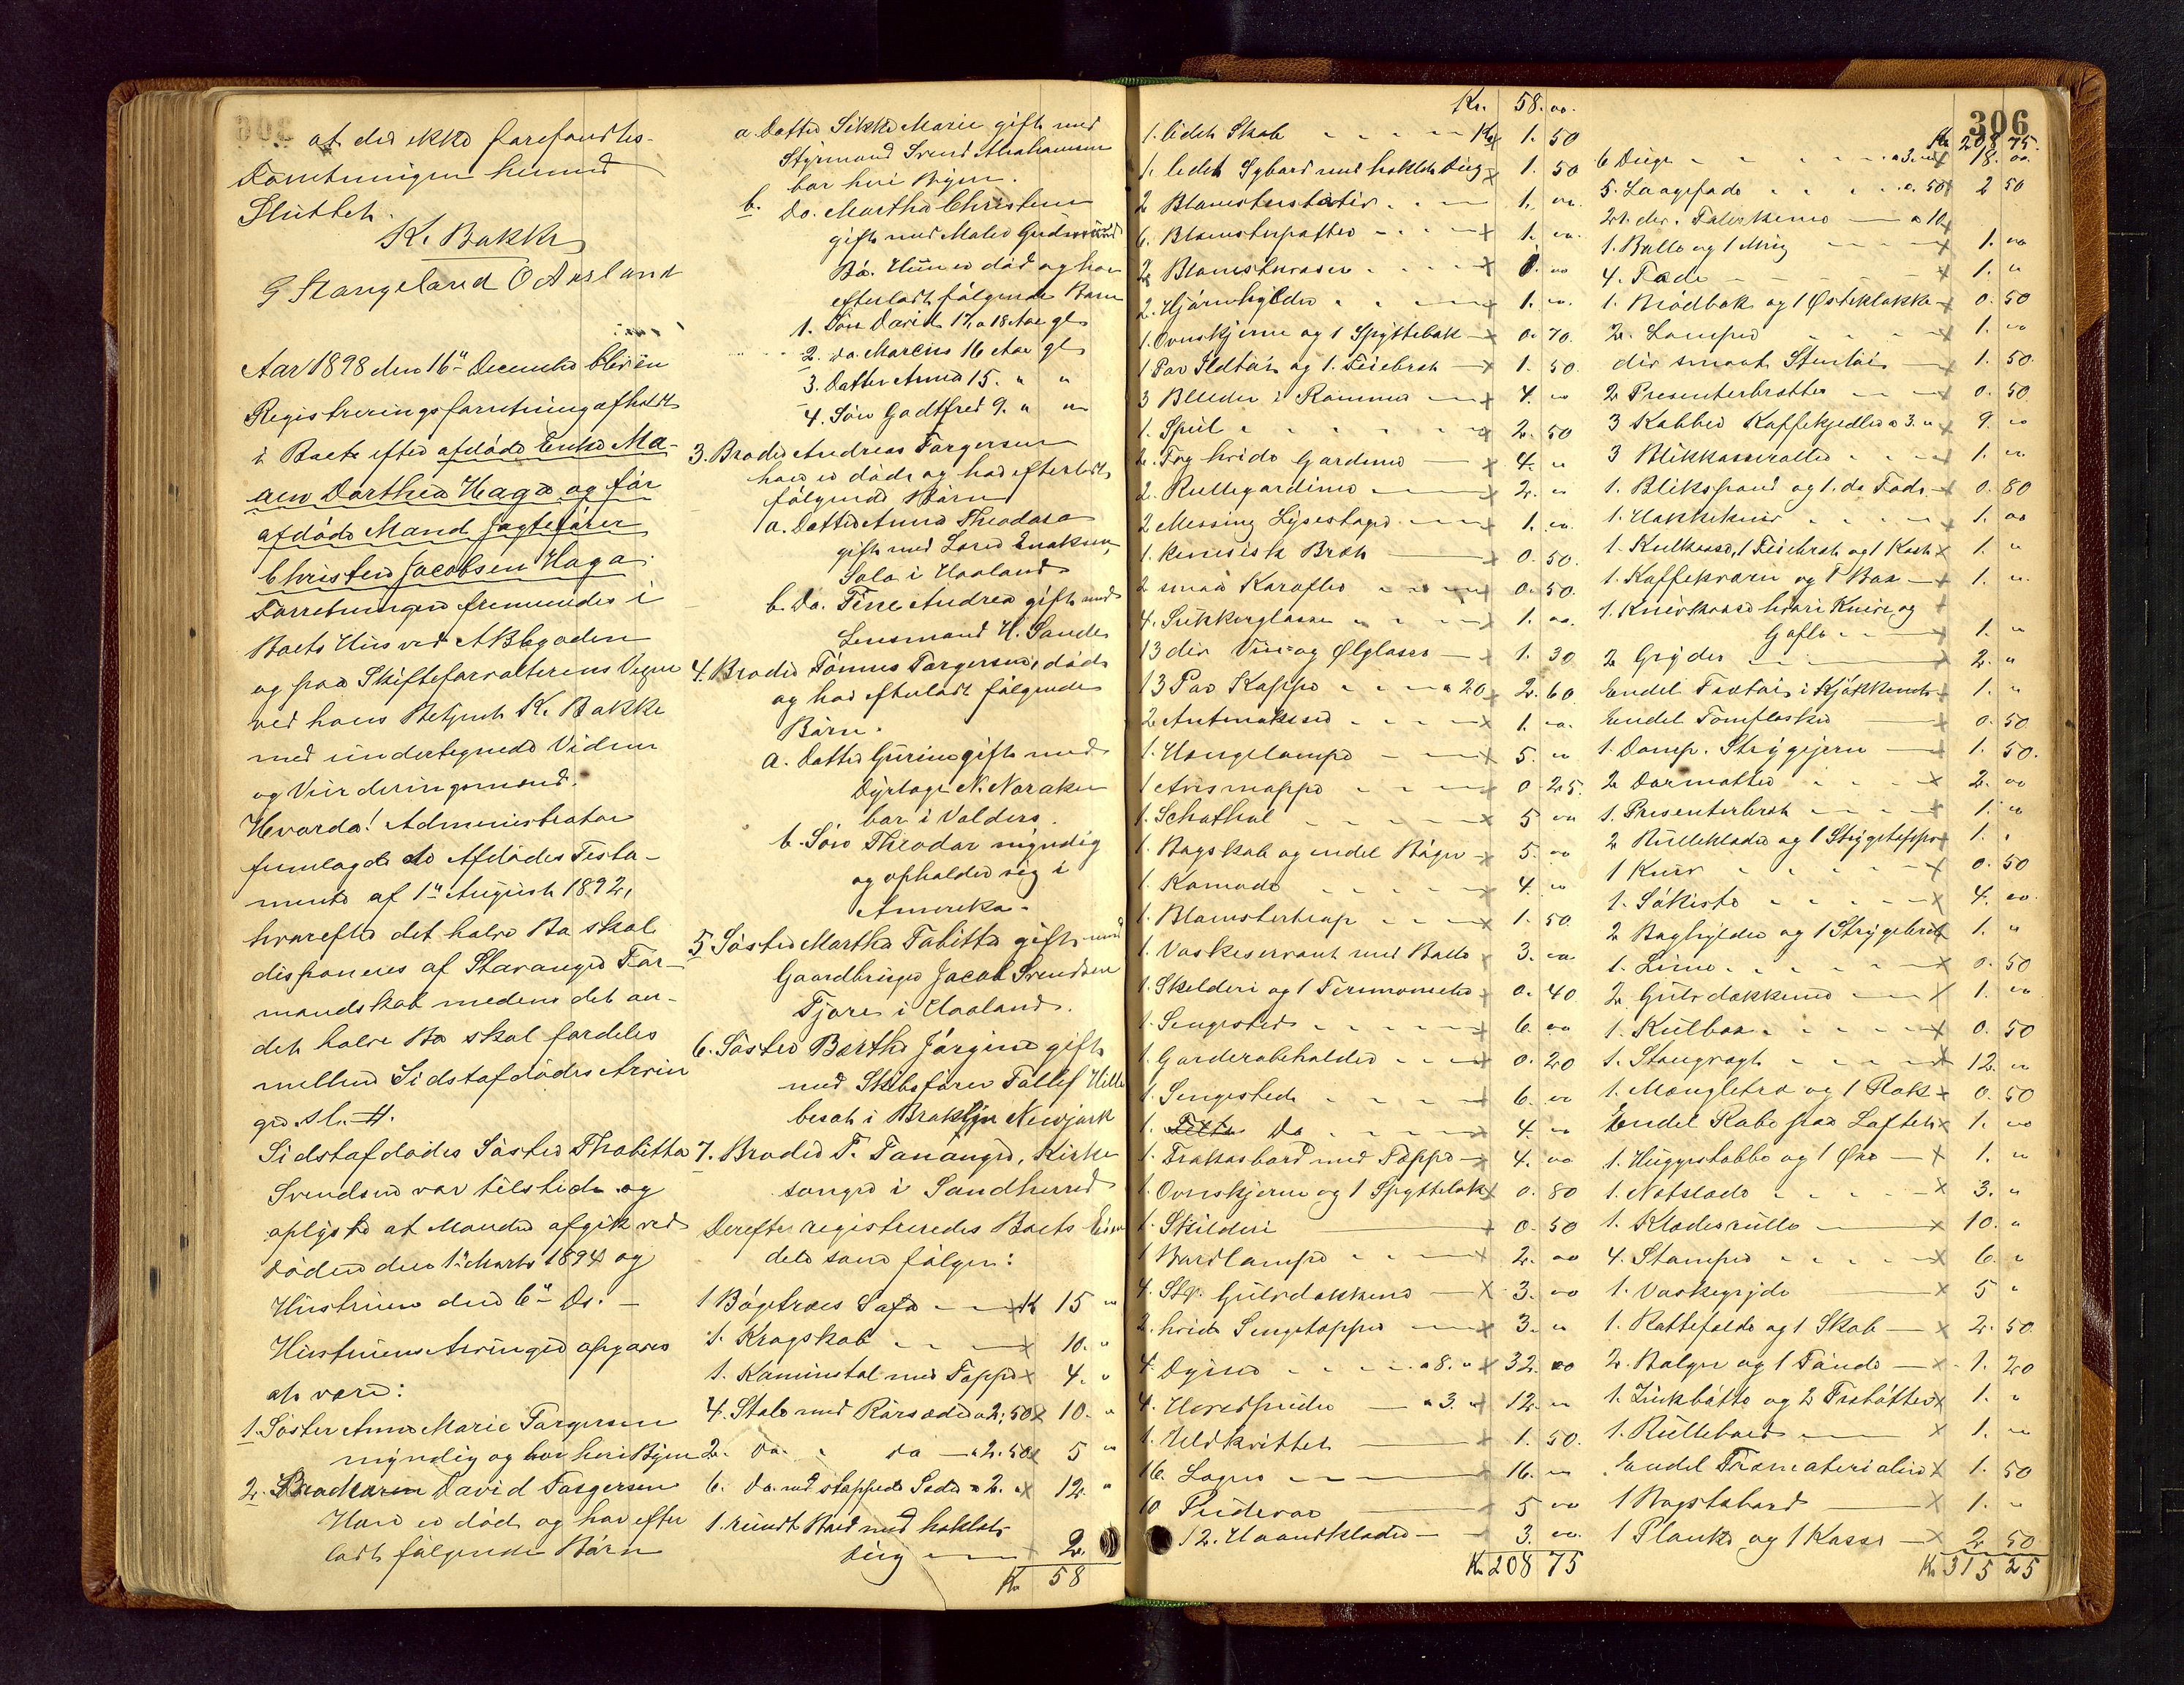 at der ikke forefandtes.
Forretningen hermed
Sluttet.
K. Bakke
G Stangeland O Aasland
Aar 1898 den 16de December blev en
Registreringsforretning afholdt
i Boet efter afdøde Enke Ma-
ren Dorthea Haga og før
afdøde Mand Jagtefører
Christen Jacobsen Haga.
Forretningen fremmedes i
Boets Hus ved ABCgaden
og paa Skifteforvalterens Vegne
ved hans Betjent K. Bakke
med undertegnede Vidner
og Vurderingsmænd.
Hvorda! Administrator
fremlagde de Afdødes Testa-
mente af 1ste August 1892,
hvorefter det halve Bo skal
disponeres af Stavanger For-
mandskab medens det an-
det halve Bo skal fordeles
mellem Sidstafdødes Arvin
ger
Sidstafdødes Søster Thabitta
Svendsen var tilstede og
oplyste at Manden afgik ved
Døden den 1ste Marts 1894 og
Hustruen den 6te Ds. -
Hustruens Arvinger opgaves
at være:
1. Søster Anna Marie Torgersen
myndig og bor heri Byen
2. Broderen David Torgersen
Han er død og har efter
ladt følgende Børn
a. Datter Sikke Marie gift med
Styrmand Svend Abrahamsen
bor heri Byen.
b. Do. Martha Christine
gift med Maler Gudmund
Bø. Hun er død og har
efterladt følgende Børn
1. Søn David 17 a 18 Aar gl
2. do. Marcus 16 Aar gl
3. Datter Anna 15. " "
4. Søn Godtfred 9. " "
3. Broder Andreas Torgersen
han er døde og har efterladt
følgende Børn
a. Datter Anna Theodora
gift med Lars Enoksen,
Sola i Haaland
b. Do. Tine Andrea gift med
Lensmand H. Sande
4. Broder Tønnes Torgersen, død
og har efterladt følgende
Børn.
a. Datter Gurine gift med
Dyrlæge N. Noraker
bor i Valders.
b. Søn Theodor myndig
og opholder sig i
Amerika.
5 Søster Martha Tabitta gift med
Gaardbruger Jacob Svendsen
Tjore i Haaland.
6. Søster Berthe Jørgine gift
med Skibsfører Tollef Hille
besat i Broklyn Newjork
7. Broder T. Tananger, Kirke
sanger i Sandherred
Derefter registreredes Boets Eien
dele som følger:
1 Bøgetræes Sofa - - x K 15 "
1. Kragskab - - x 10. "
1. Kaminstol med Teppe x 4. "
4. Stole med Rørsæder a 2,50 x 10. "
2. do. " do - a 2.50 x 5 "
6. do. med stoppede Sæder a 2. " x 12. "
1. rundt Bord med heklet
Dug - x 2.
Kr 58
306
Kr. 58. oo.
1. lidet Skab - - - Kr x 1. 50
1. lidet Sybord med heklet Dug x 1. 50
2 Blomsterstativ. - - 1. oo.
6. Blomsterpotter - - x 1. oo.
2 Blomstervaser - - x 0. oo
2. Hjørnehylder - - x 1. oo.
1. Ovnskjerm og 1 Spyttebak - x 0. 70.
1 Par Ildtøi og 1. Feiebret - x 1. 50.
3 Billeder i Ramme - x 4. oo
1. Speil - - - x 2. 50
2. Fag hvide Gardiner - x 4. "
2. Rullegardiner - x 2. "
2 Messing Lysestager - x 1. oo.
1. kinesisk Bret - 0. 50.
2 smaa Karafler - - x 0. 50.
4. Sukkerglasse - - x 1. oo.
13 div Vin og Ølglasse - x 1. 30
13 Par Kopper - - a 20 x 2. 60
2 Antimakasser - - x 1. oo.
1. Hengelampe - x 5. "
1 Avismappe - - x 0 25.
1. Schathol - - x 5 oo
1. Bogskab og endel Bøger x 5. oo
1. Komode - - x 4. oo
1. Blomstertrap - - x 1. 50.
1. Vaskeservant med Balle x 3. oo.
1. Skilderi og 1 Termometer x 0. 40
1. Sengested - - x 6. oo
1. Garderobeholder - - x 0. 20
1. Sengested - - x 6. oo
1. Do - - x 4. oo
1. Trækasbord med Teppe x 4. oo
1. Ovnskjerm og 1 Spyttebak x 0. 80
1. Skilderi - x 0. 50
1 Bordlampe - - x 2. oo
4. Stk. Gulvdækkener - x 3. oo
2. hvide Sengetepper - x 3. "
4. Dyner - - - a 8. " x 32. oo
4. Hovedpuder - a 3. " x 12. "
1. Uldkvittel - x 1. 50.
16. Lagner - - x 16. "
10 Pudevar - 5 oo
12. Haandklæder - 3. oo.
Kr 208 75
Kr. 208 75.
6 Duge - - - a 3. " x 18. oo
5. Laagefade - - a. 50 x 2 50
21. div. Talerkener - a 10 x
1. Bolle og 1 Mug - - x 1. oo
4. Fade - - - x 1. "
1. Brødbak og 1 Osteklokke x 0. 50
2. Lamper - - x 1. oo
div smaat Stentøi - x 1. 50.
2 Presenterbretter - x 0. 50
3 Kobber Kaffekjedler a 3. " x 9. oo
3 Blikkasseroller - - x 1. oo
1. Blikspand og 1. do Fad - x 0. 80
1. Hakkekniv - - x 1. oo
1. Kulkasse, 1 Feiebret og 1 Kost x 1. "
1. Kaffekværn og 1 Bør - x 1. "
1. Knivkasse hvori Knive og
Gafle - - x 1. "
2 Gryder - x 2. "
Endel Trætøi i Kjøkkenet x 1. "
Endel Tomflasker - 0. 50
1. Damp. Strygejern - x 1. 50.
2 Dørmatter - - x 2. oo
1. Presenterbret - - x 1. "
2 Rulleklæder og 1 Strygeteppe x 1. "
1 Kniv - - x 0. 50
1. Søkiste - - x 4. oo.
2 Baghylder og 1 Strygebret x 1. "
1. Lime - - x 0. 50
2 Gulvdækkener - x 1. oo
1. Kulbox - - x 0. 50
1. Stangvægt - - x 12. "
1. Mangletræ og 1 Stok x 0. 50
Endel Rabe paa Loftet x 1. oo
1. Huggestabbe og 1 Øxe - x 1. "
1. Notslæde - - x 3. "
1. Klædesrulle - x 10. "
4. Stamper - - x 6. "
1. Vaskegryde - x 5 "
1. Rottefælde og 1 Skab - x 2. 50
2. Balger og 1 Tønde - x 1. 20
1. Zinkbøtte og 2 Træbøtter x 1. "
1. Rullebord - x 1. "
Endel Træmaterialier x 1. 50
1 Bagstebord - x 1. "
1 Planke og 1 Kasse - x 2 50
Kr 315 25